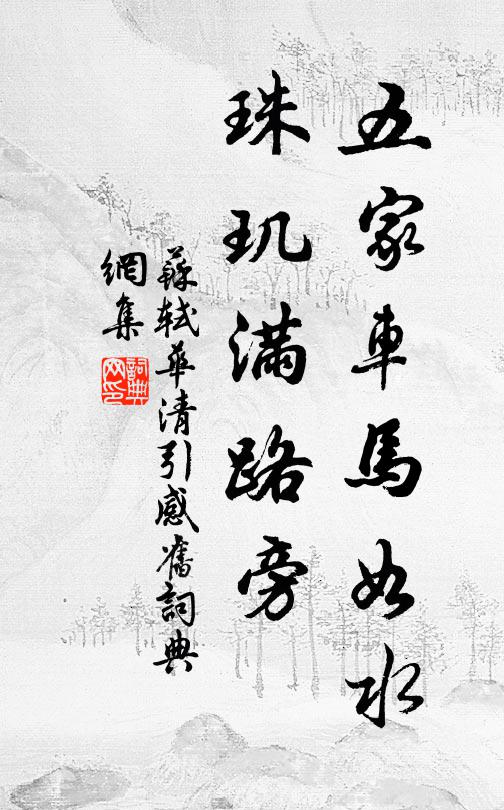 五家車馬如水
珠玑滿路旁
蘇軾華清引感舊詞典
網集
詞典
网印